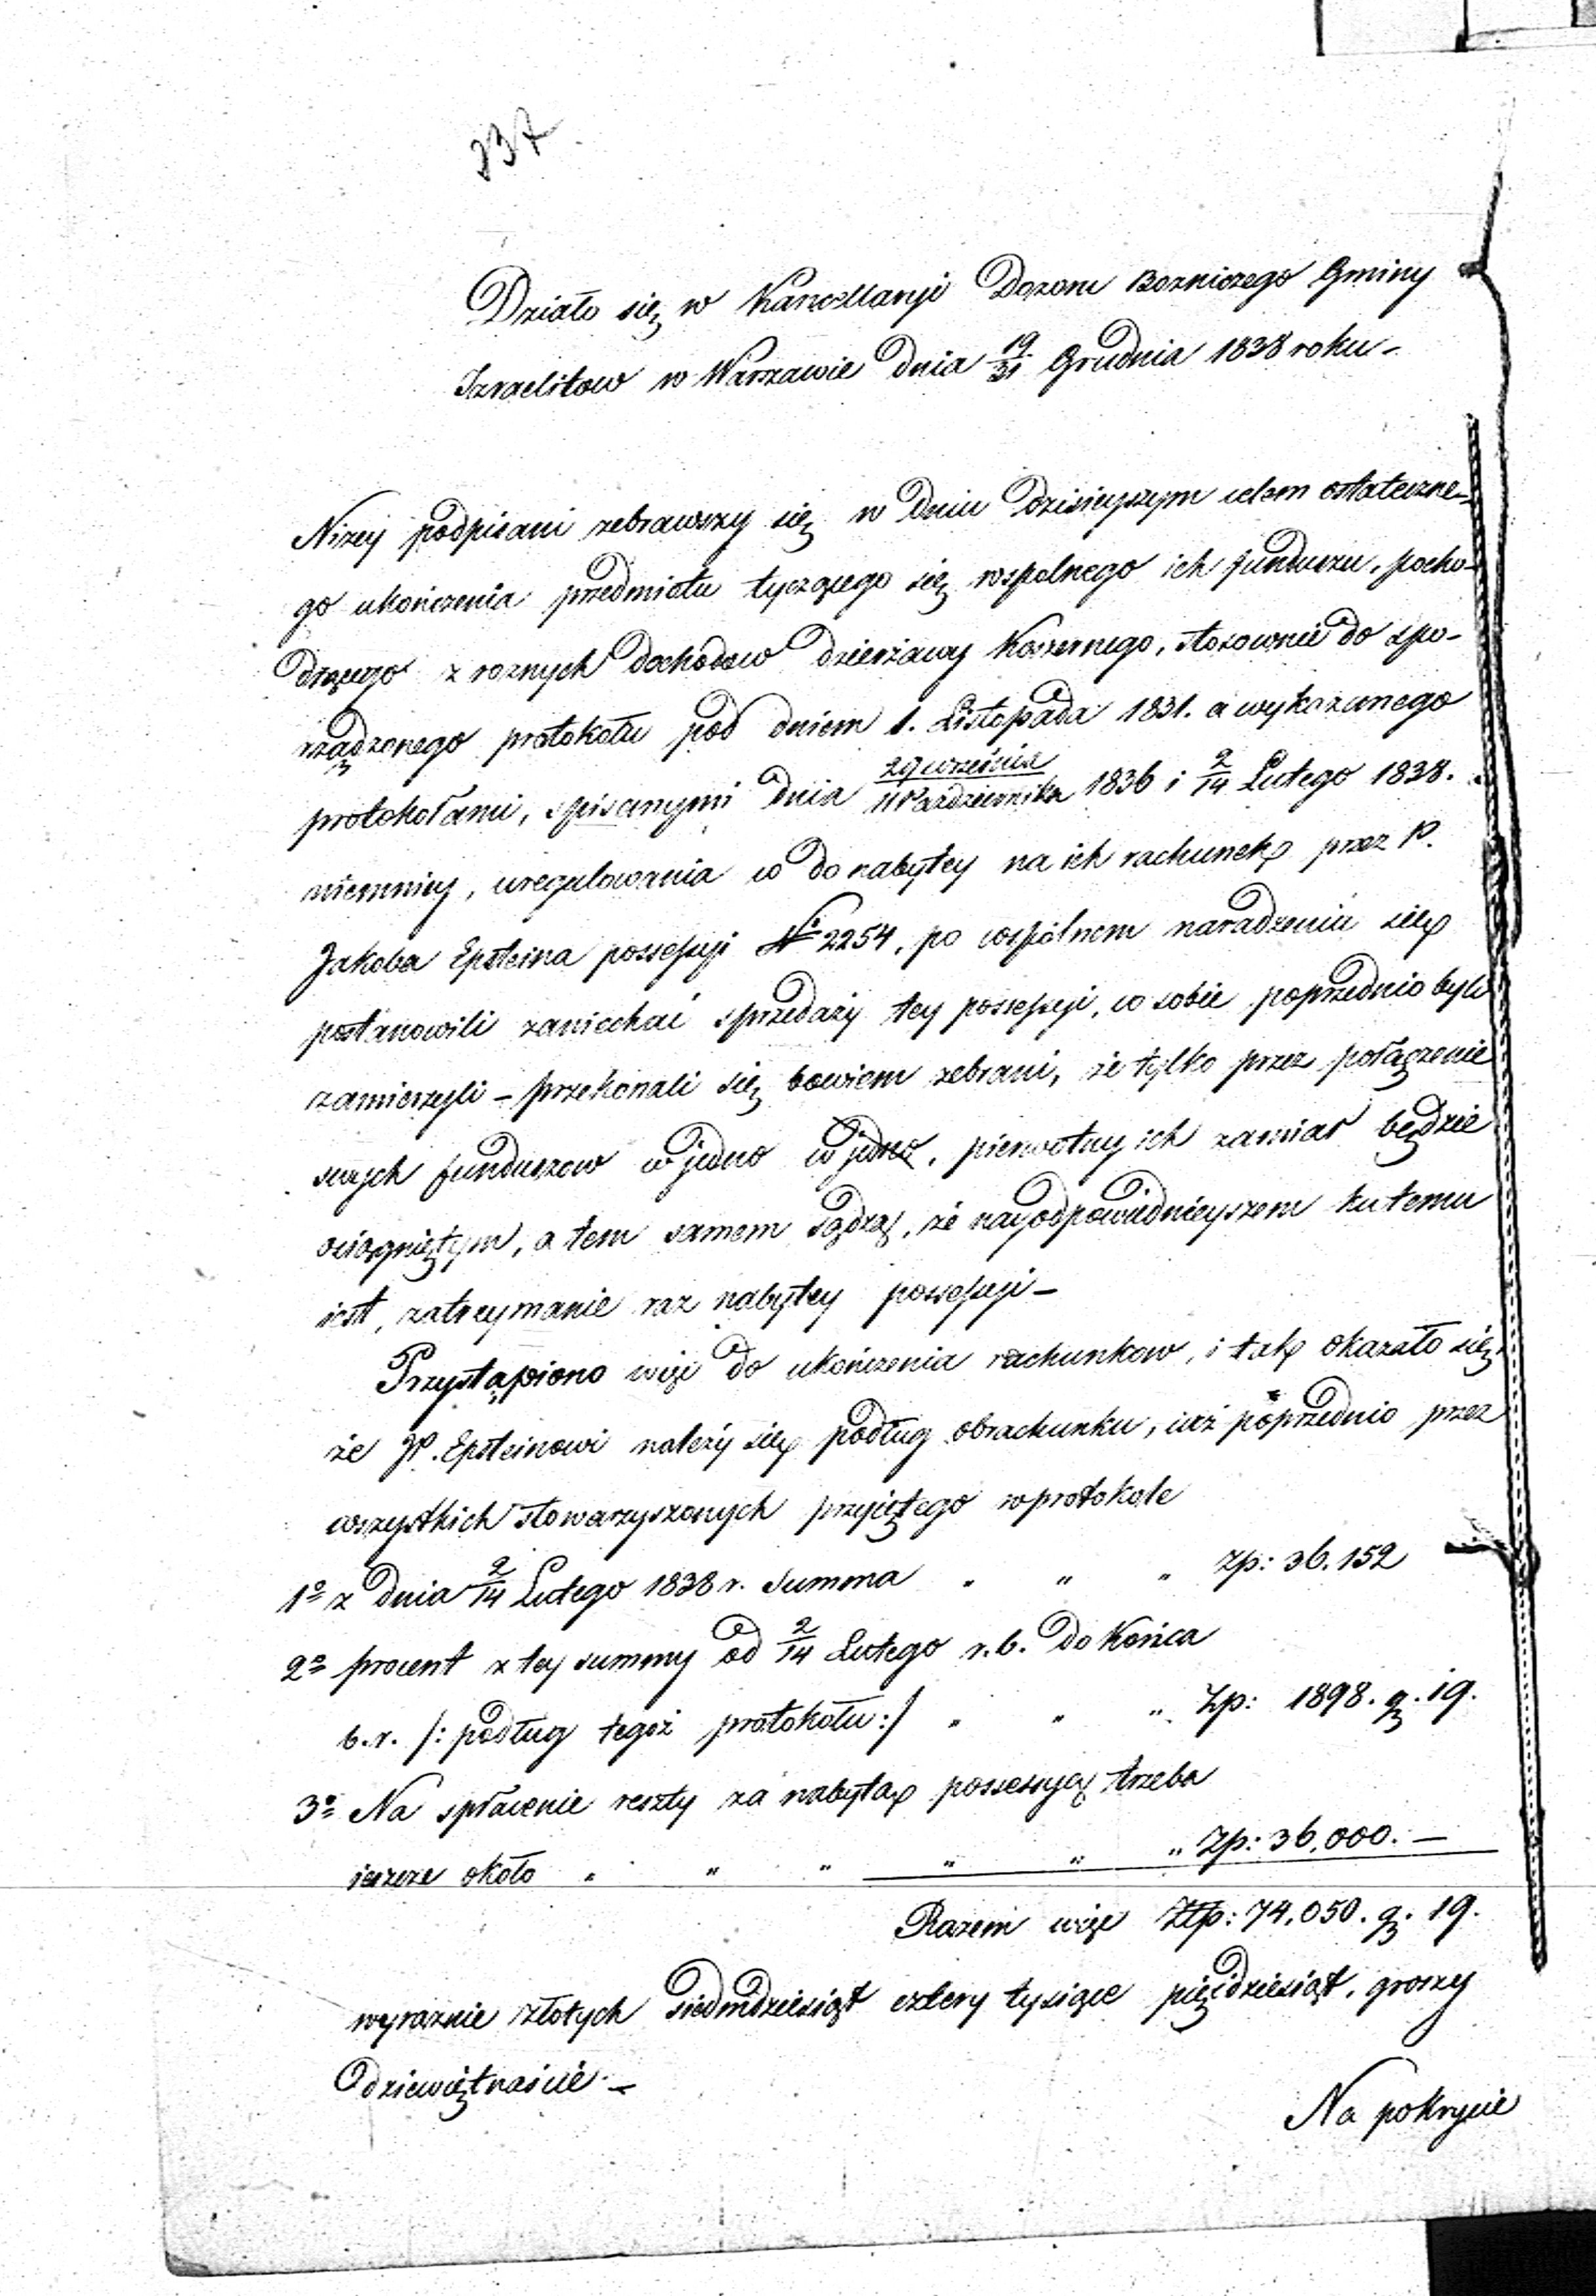 237
Działo się w Kancellaryi Dozoru Bozniczego Gminy
Izraelitow w Warszawie dnia 19/31 Grudnia 1838 roku -
Niżey podpisani zebrawszy się w dniu dzisieyszym celem ostateczne-
go ukończenia przedmiotu tyczącego się wspolnego ich funduszu, pocho-
dzącego z roznych dochodow dzierżawy Koszernego, stosownie do spo-
rządzonego protokołu pod dniem 1. Listopada 1831. a wykazanego
protokołami, spisanymi dnia 29 września/11 Pazdziernika 1836 i 2/14 Lutego 1838.
niemniey, uregulowania co do nabytey na ich rachunek przez P.
Jakoba Epsteina possessyi № 2254, po wspólnem naradzeniu się
postanowili zaniechać sprzedaży tey possessyi, co sobie poprzednio byli
zamierzyli - przekonali się bowiem zebrani, że tylko przez połączenie
swych funduszow w jedno w jedno, pierwotny ich zamiar będzie
osiągniętym, a tem samem sądzą, że nayodpowiednieyszem ku temu
iest, zatrzymanie raz nabytey possessyi -
Przystąpiono więc do ukończenia rachunkow, i tak okazało się,
że JP. Epsteinowi należy się podług obrachunku, iuż poprzednio przez
wszystkich stowarzyszonych przyiętego w protokole
1º z dnia 2/14 Lutego 1838 r. Summa " " " Zp: 36.152
2º procent z tey summy od 2/14 Lutego r.b. do Końca
b.r. /: podług tegoż protokołu :/ " " " Zp: 1898. g. 19.
3º Na spłacenie reszty za nabytą possessyą trzeba
ieszcze około " " " " " " Zp: 36,000. —
Razem więc Złp: 74,050. g. 19.
wyraznie złotych siedmdziesiąt cztery tysiące pięćdziesiąt, groszy
dziewiętnaście. -
Na pokrycie